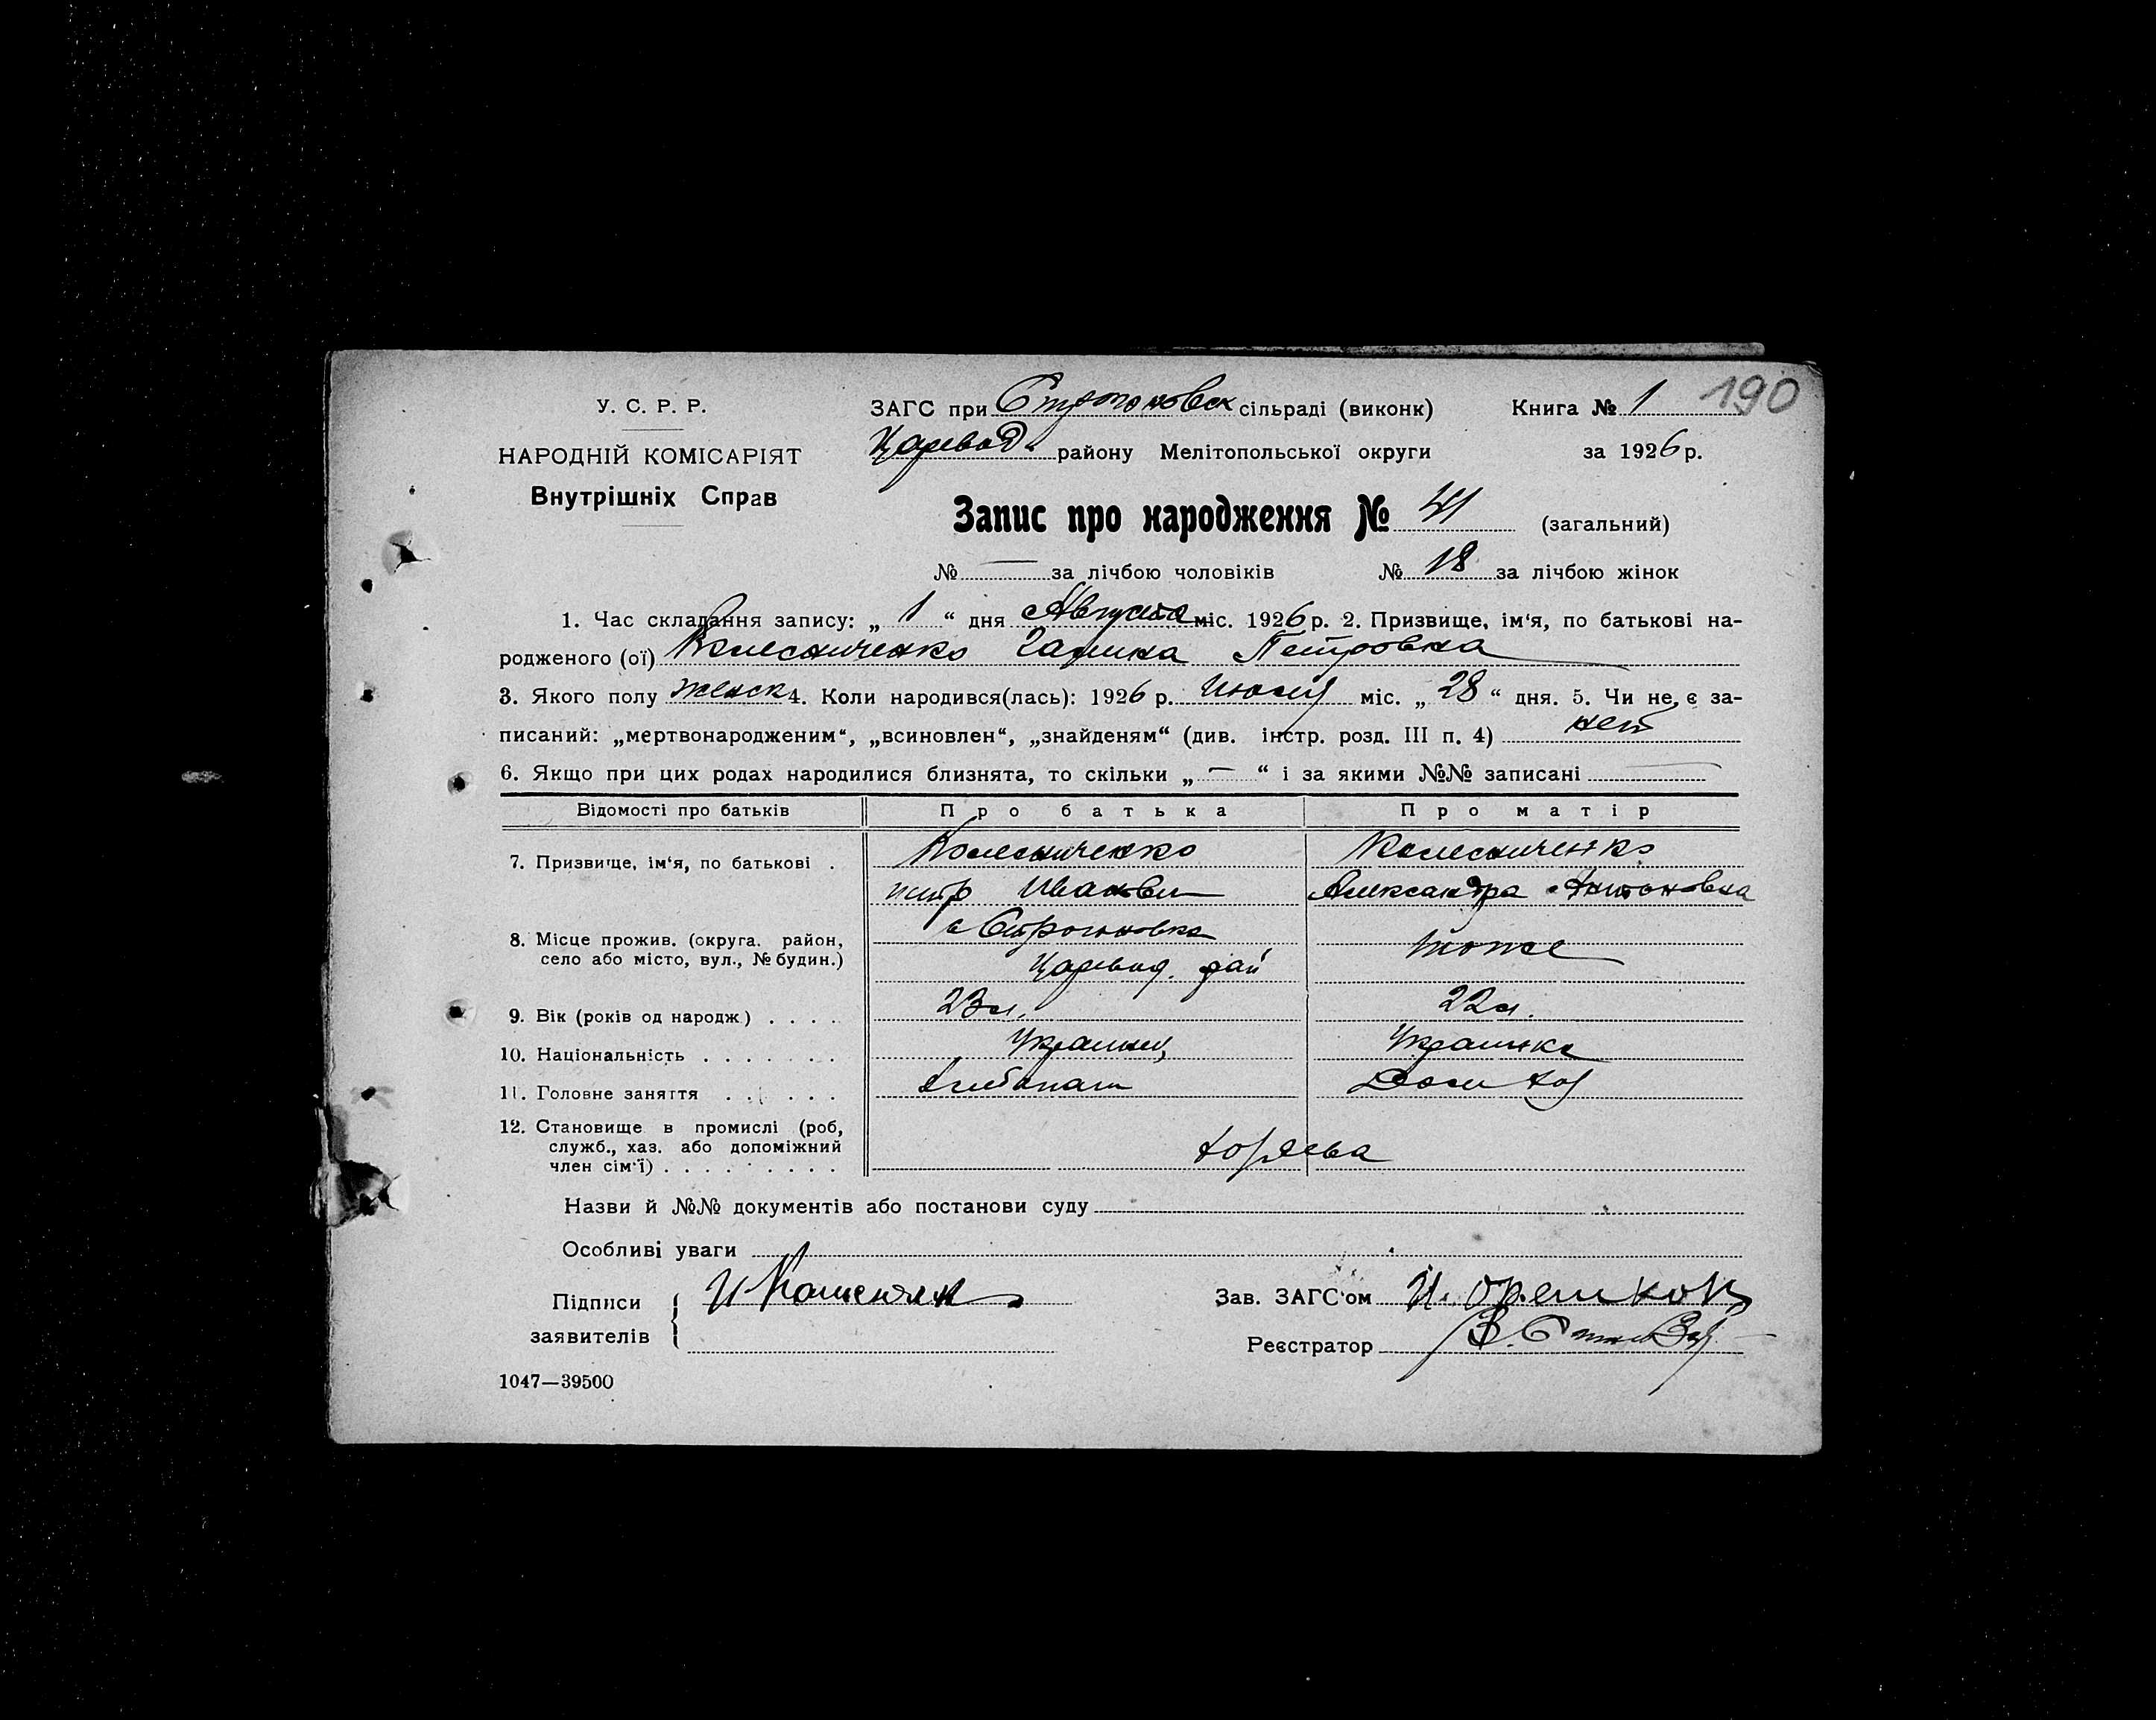 190
У. С. Р. Р. ЗАГС при Строгоновск сільраді (виконк) Книга № 1
НАРОДНІЙ КОМІСАРІЯТ Царевод. району Мелітопольської округи за 1926 р.
Внутрішніх Справ
Запис про народження № 41 (загальний)
№ — за лічбою чоловіків № 18 за лічбою жінок
1. Час складання запису: „ 1 “ дня Августа міс. 1926 р. 2. Призвище, ім‘я, по батькові на-
родженого (ої) Колесниченко Галина Петровна
3. Якого полу женск 4. Коли народився(лась): 1926 р. Июля міс. „ 28 “ дня. 5. Чи не є за-
писаний: „мертвонародженим“, „всиновлен“, „знайденям“ (див. інстр. розд. III п. 4) нет
6. Якщо при цих родах народилися близнята, то скільки „ — “ і за якими №№ записані —
Відомості про батьків Про батька Про матір
7. Призвище, ім‘я, по батькові . Колесниченко Колесниченко
петр Иванович Александра Антоновна
8. Місце прожив. (округа, район, с Строгоновка тоже
село або місто, вул., № будин.) Царевод. рай
9. Вік (років од народж.) . . . . 23 л. 22 л.
10. Національність . . . . . . . Украинец Украинка
11. Головне заняття . . . . . . Хлебопаш Дом хоз
12. Становище в промислі (роб,
служб., хаз. або допоміжний
член сім‘ї) . . . . . . . . . хозяева
Назви й №№ документів або постанови суду
Особливі уваги
Підписи Зав. ЗАГС‘ом И. Орешков
заявителів Реєстратор
1047—39500